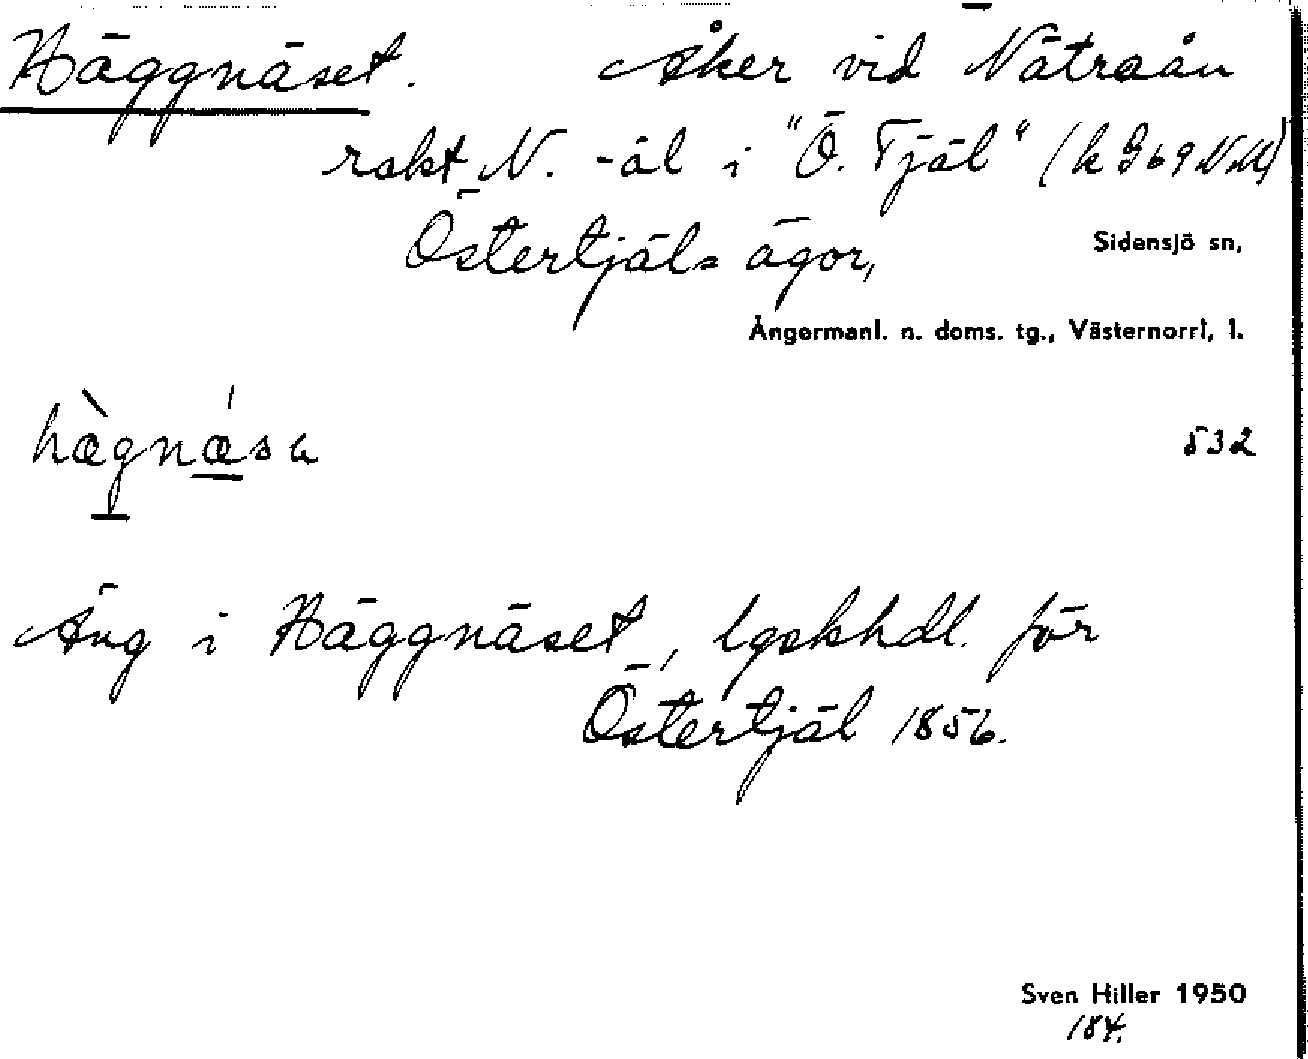 Häggnäset. Åker vid Nätraån
rakt N. -äl i "Ö. Tjäl" (k G69NM)
Östertjäls ägor,
Sidensjö sn,
Ångermanl. n. doms. tg., Västernorrl. l.
hæ̀gnǽsa
532
Äng i Häggnäset, lgskhdl. för
Östertjäl 1856.
Sven Hiller 1950
184.